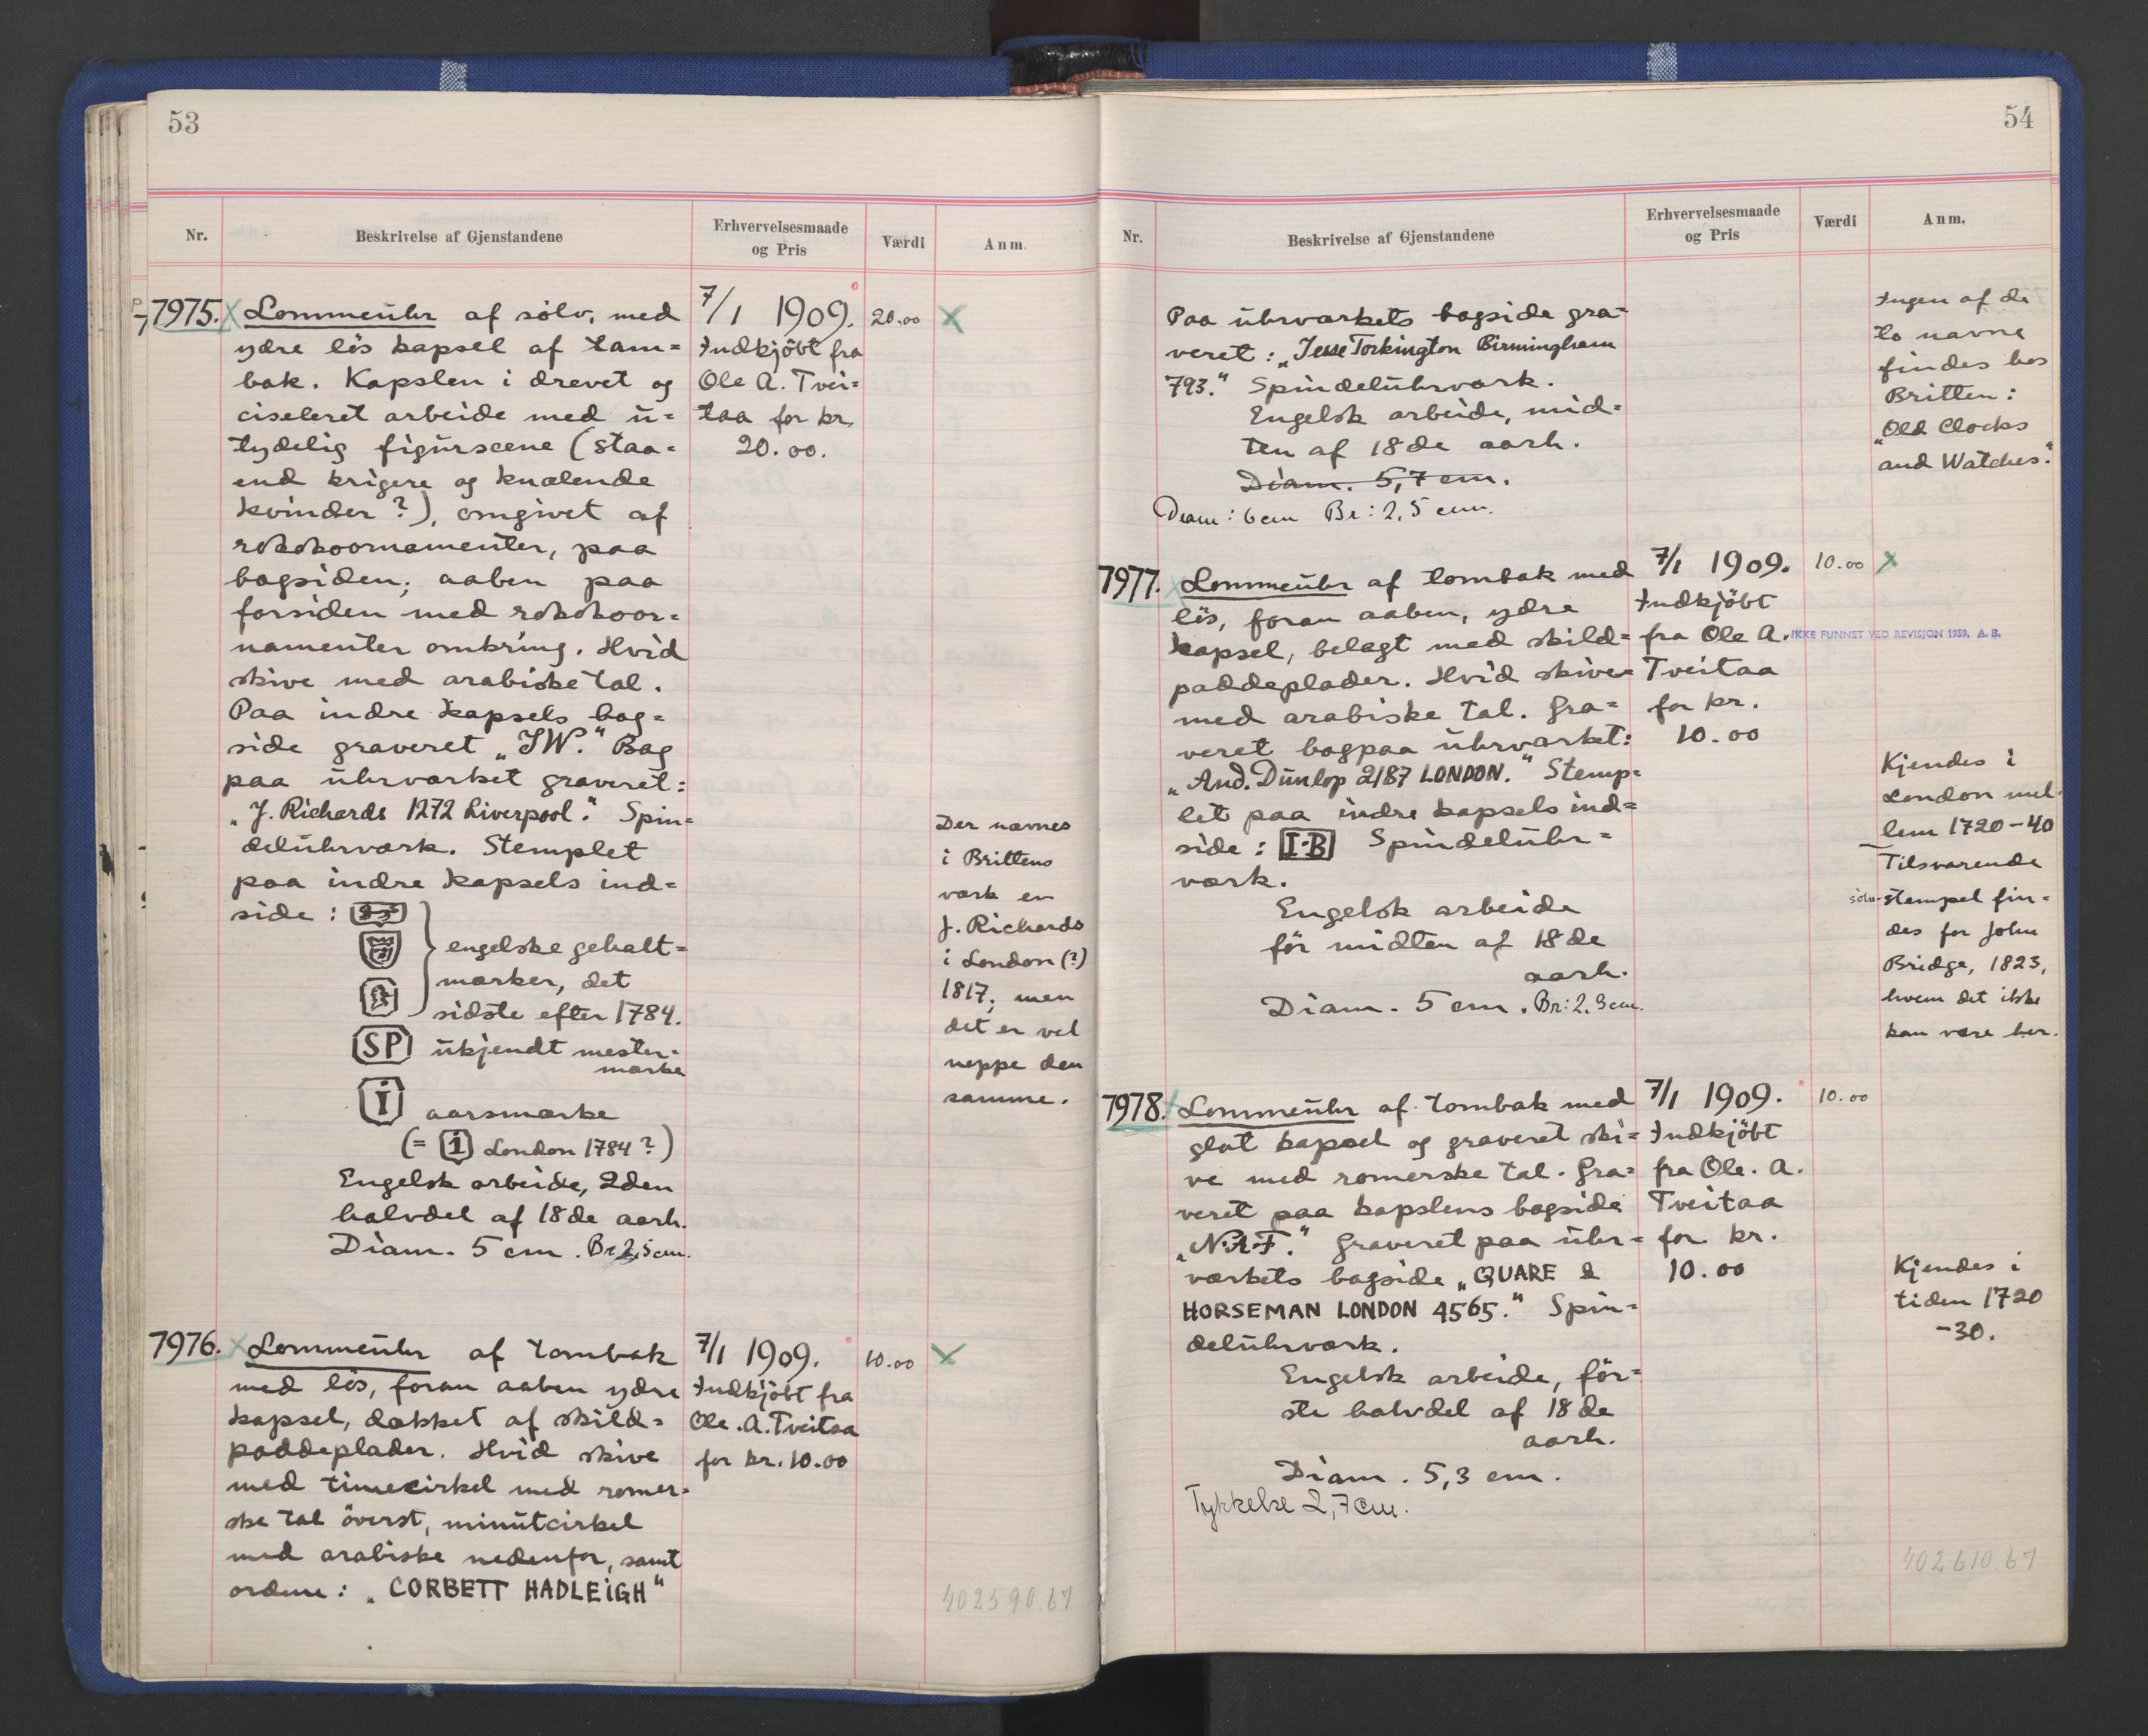 53
Nr.
Beskrivelse af Gjenstandene
Erhvervelsesmaade
og Pris
Værdi
Anm.
7975. Lommeuhr af sölv, med
ydre lös kapsel af tam=
bak. Kapslen i drevet og
ciseleret arbeide med u=
tydelig figurscene (staa=
end krigere og knælende
kvinder?), omgivet af
rokokoornamenter, paa
bagsiden; aaben paa
forsiden med rokokoor=
namenter omkring. Hvid
skive med arabiske tal.
Paa indre kapsels bag=
side graveret „JW." Bag
paa uhrværket graveret:
„J. Richards 1272 Liverpool". Spin=
deluhrværk. Stemplet
paa indre kapsels ind=
side:
engelske gehalt=
mærker, det
sidste efter 1784.
SP ukjendt mester=
mærke
i aarsmærke
(= i London 1784?)
Engelsk arbeide, 2den
halvdel af 18de aarh.
Diam. 5 cm. Br 2,5 cm.
7/1 1909.
Indkjöbt fra
Ole A. Tvei=
taa for kr.
20.00.
20.00
X
Der nævnes
i Brittens
værk en
J. Richards
i London (?)
1817, men
det er vel
neppe den
samme.
7976. Lommeuhr af tombak
med lös, foran aaben ydre
kapsel, dækket af skild=
paddeplader. Hvid skive
med timecirkel med romer-
ske tal överst, minutcirkel
med arabiske nedenfor, samt
ordene: „CORBETT HADLEIGH"
7/1 1909.
Indkjöbt fra
Ole. A. Tveitaa
for kr. 10.00
10.00
X
402590.67
54
Nr.
Beskrivelse af Gjenstandene
Erhvervelsesmaade
og Pris
Værdi
Anm.
Paa uhrværkets bagside gra=
veret: „Jesse Torkington Birmingham
793." Spindeluhrværk.
Engelsk arbeide, mid=
ten af 18de aarh.
Diam. 5,7 cm.
Diam: 6 cm Br: 2,5 cm.
Ingen af de
to navne
findes hos
Britten:
„Old Clocks
and Watches".
7977. Lommeuhr af tombak med
lös, foran aaben, ydre
kapsel, belagt med skild=
paddeplader. Hvid skive
med arabiske tal. Gra=
veret bagpaa uhrværket:
„And. Dunlop 2187 LONDON." Stemp=
let paa indre kapsels ind=
side: I·B Spindeluhr=
værk.
Engelsk arbeide
för midten af 18de
aarh.
Diam. 5 cm. Br: 2,3 cm.
7/1 1909.
Indkjöbt
fra Ole A.
Tveitaa
for kr.
10.00
10.00
X
IKKE FUNNET VED REVISJON 1959. A. B.
Kjendes i
London mel-
lem 1720-40
Tilsvarende
sölv-stempel fin=
des for John
Bridge, 1823,
hvem det ikke
kan være her.
7978. Lommeuhr af tombak med
glat kapsel og graveret ski=
ve med romerske tal. Gra=
veret paa kapslens bagside
„N·A·F." Graveret paa uhr=
værkets bagside „QUARE &
HORSEMAN LONDON 4565." Spin=
deluhrværk.
Engelsk arbeide, för=
ste halvdel af 18de
aarh.
Diam. 5,3 cm.
Tykkelse 2,7 cm.
7/1 1909.
Indkjöbt
fra Ole. A.
Tveitaa
for kr.
10.00
10.00
Kjendes i
tiden 1720
-30.
402610.67